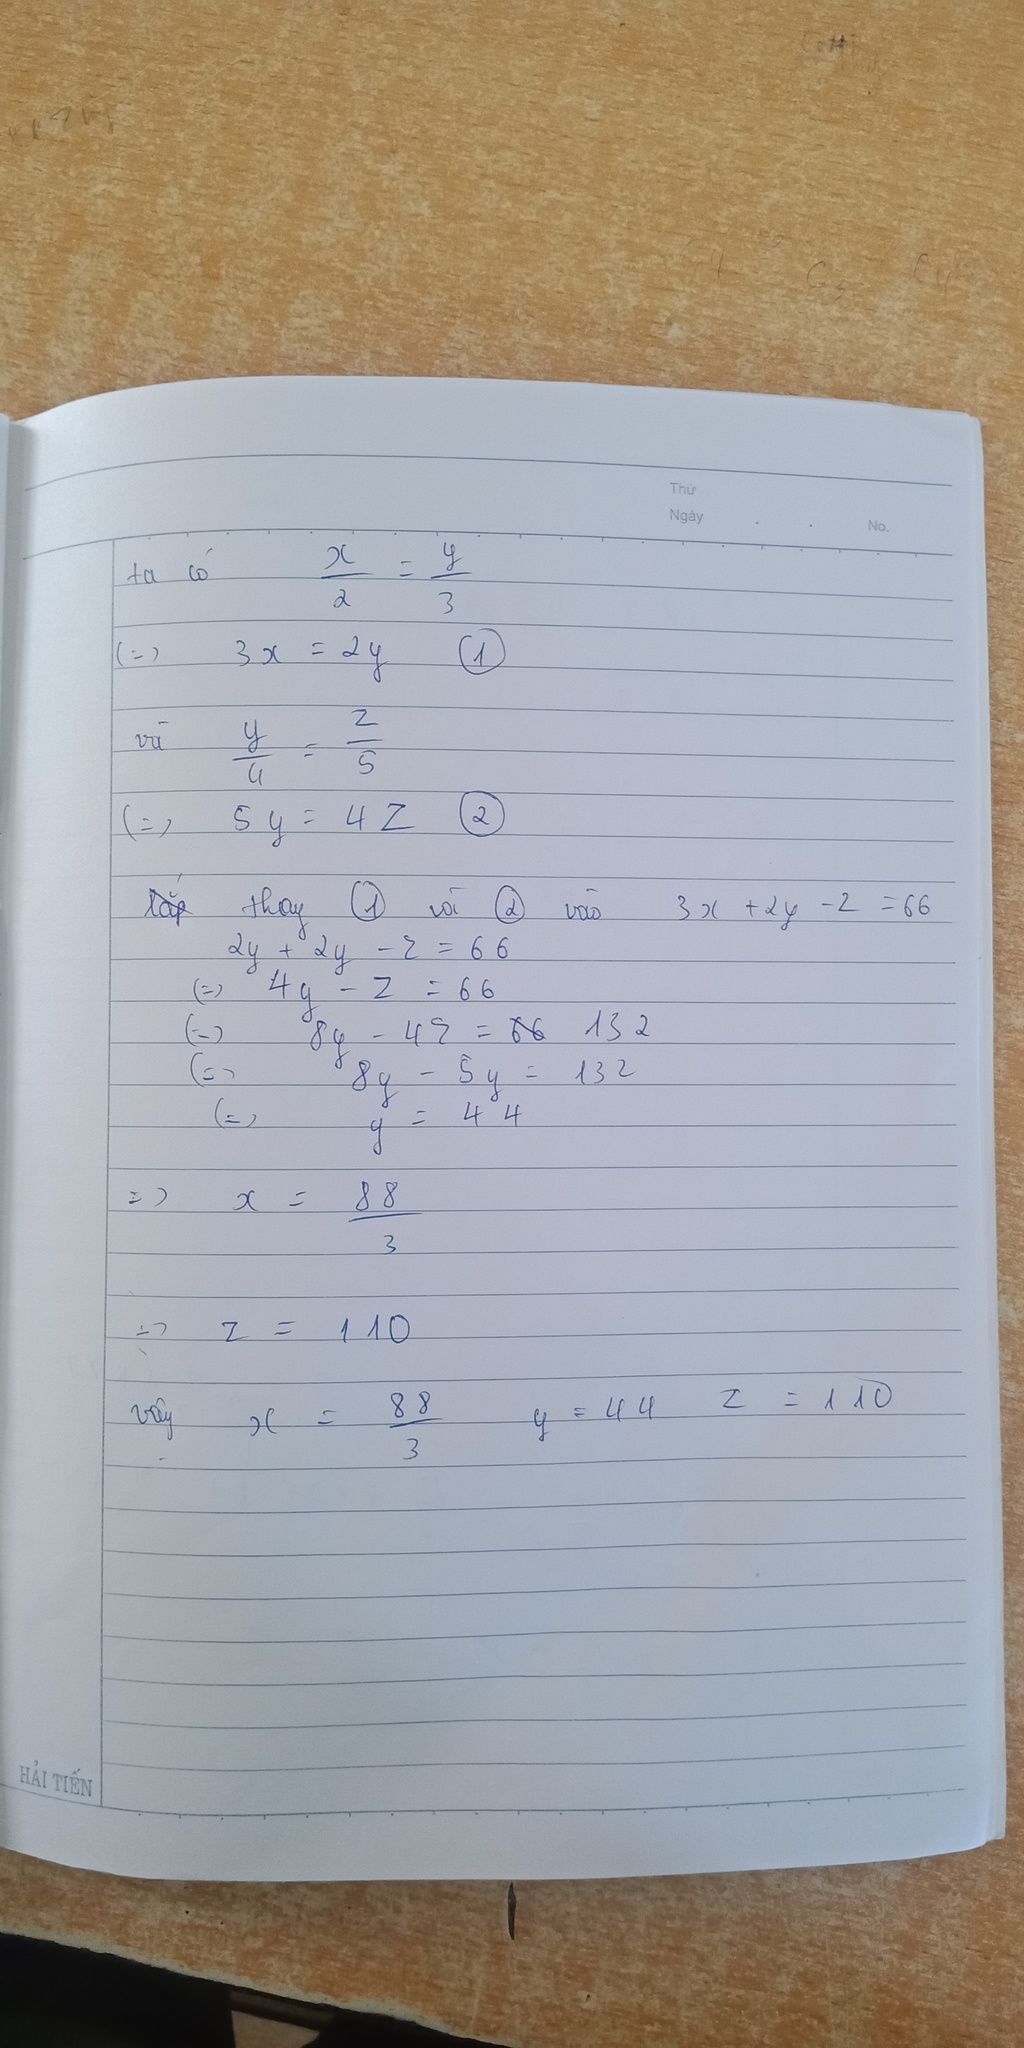 Thứ
Ngày . . No.
ta có x/2 = y/3
(=) 3x = 2y ①
và y/4 = z/5
(=) 5y = 4z ②
thay ① và ② vào 3x + 2y - z = 66
2y + 2y - z = 66
(=) 4y - z = 66
(=) 8y - 4z = 66 132
(=) 8y - 5y = 132
(=) y = 44
=) x = 88/3
=) z = 110
vậy x = 88/3 y = 44 z = 110
HẢI TIẾN